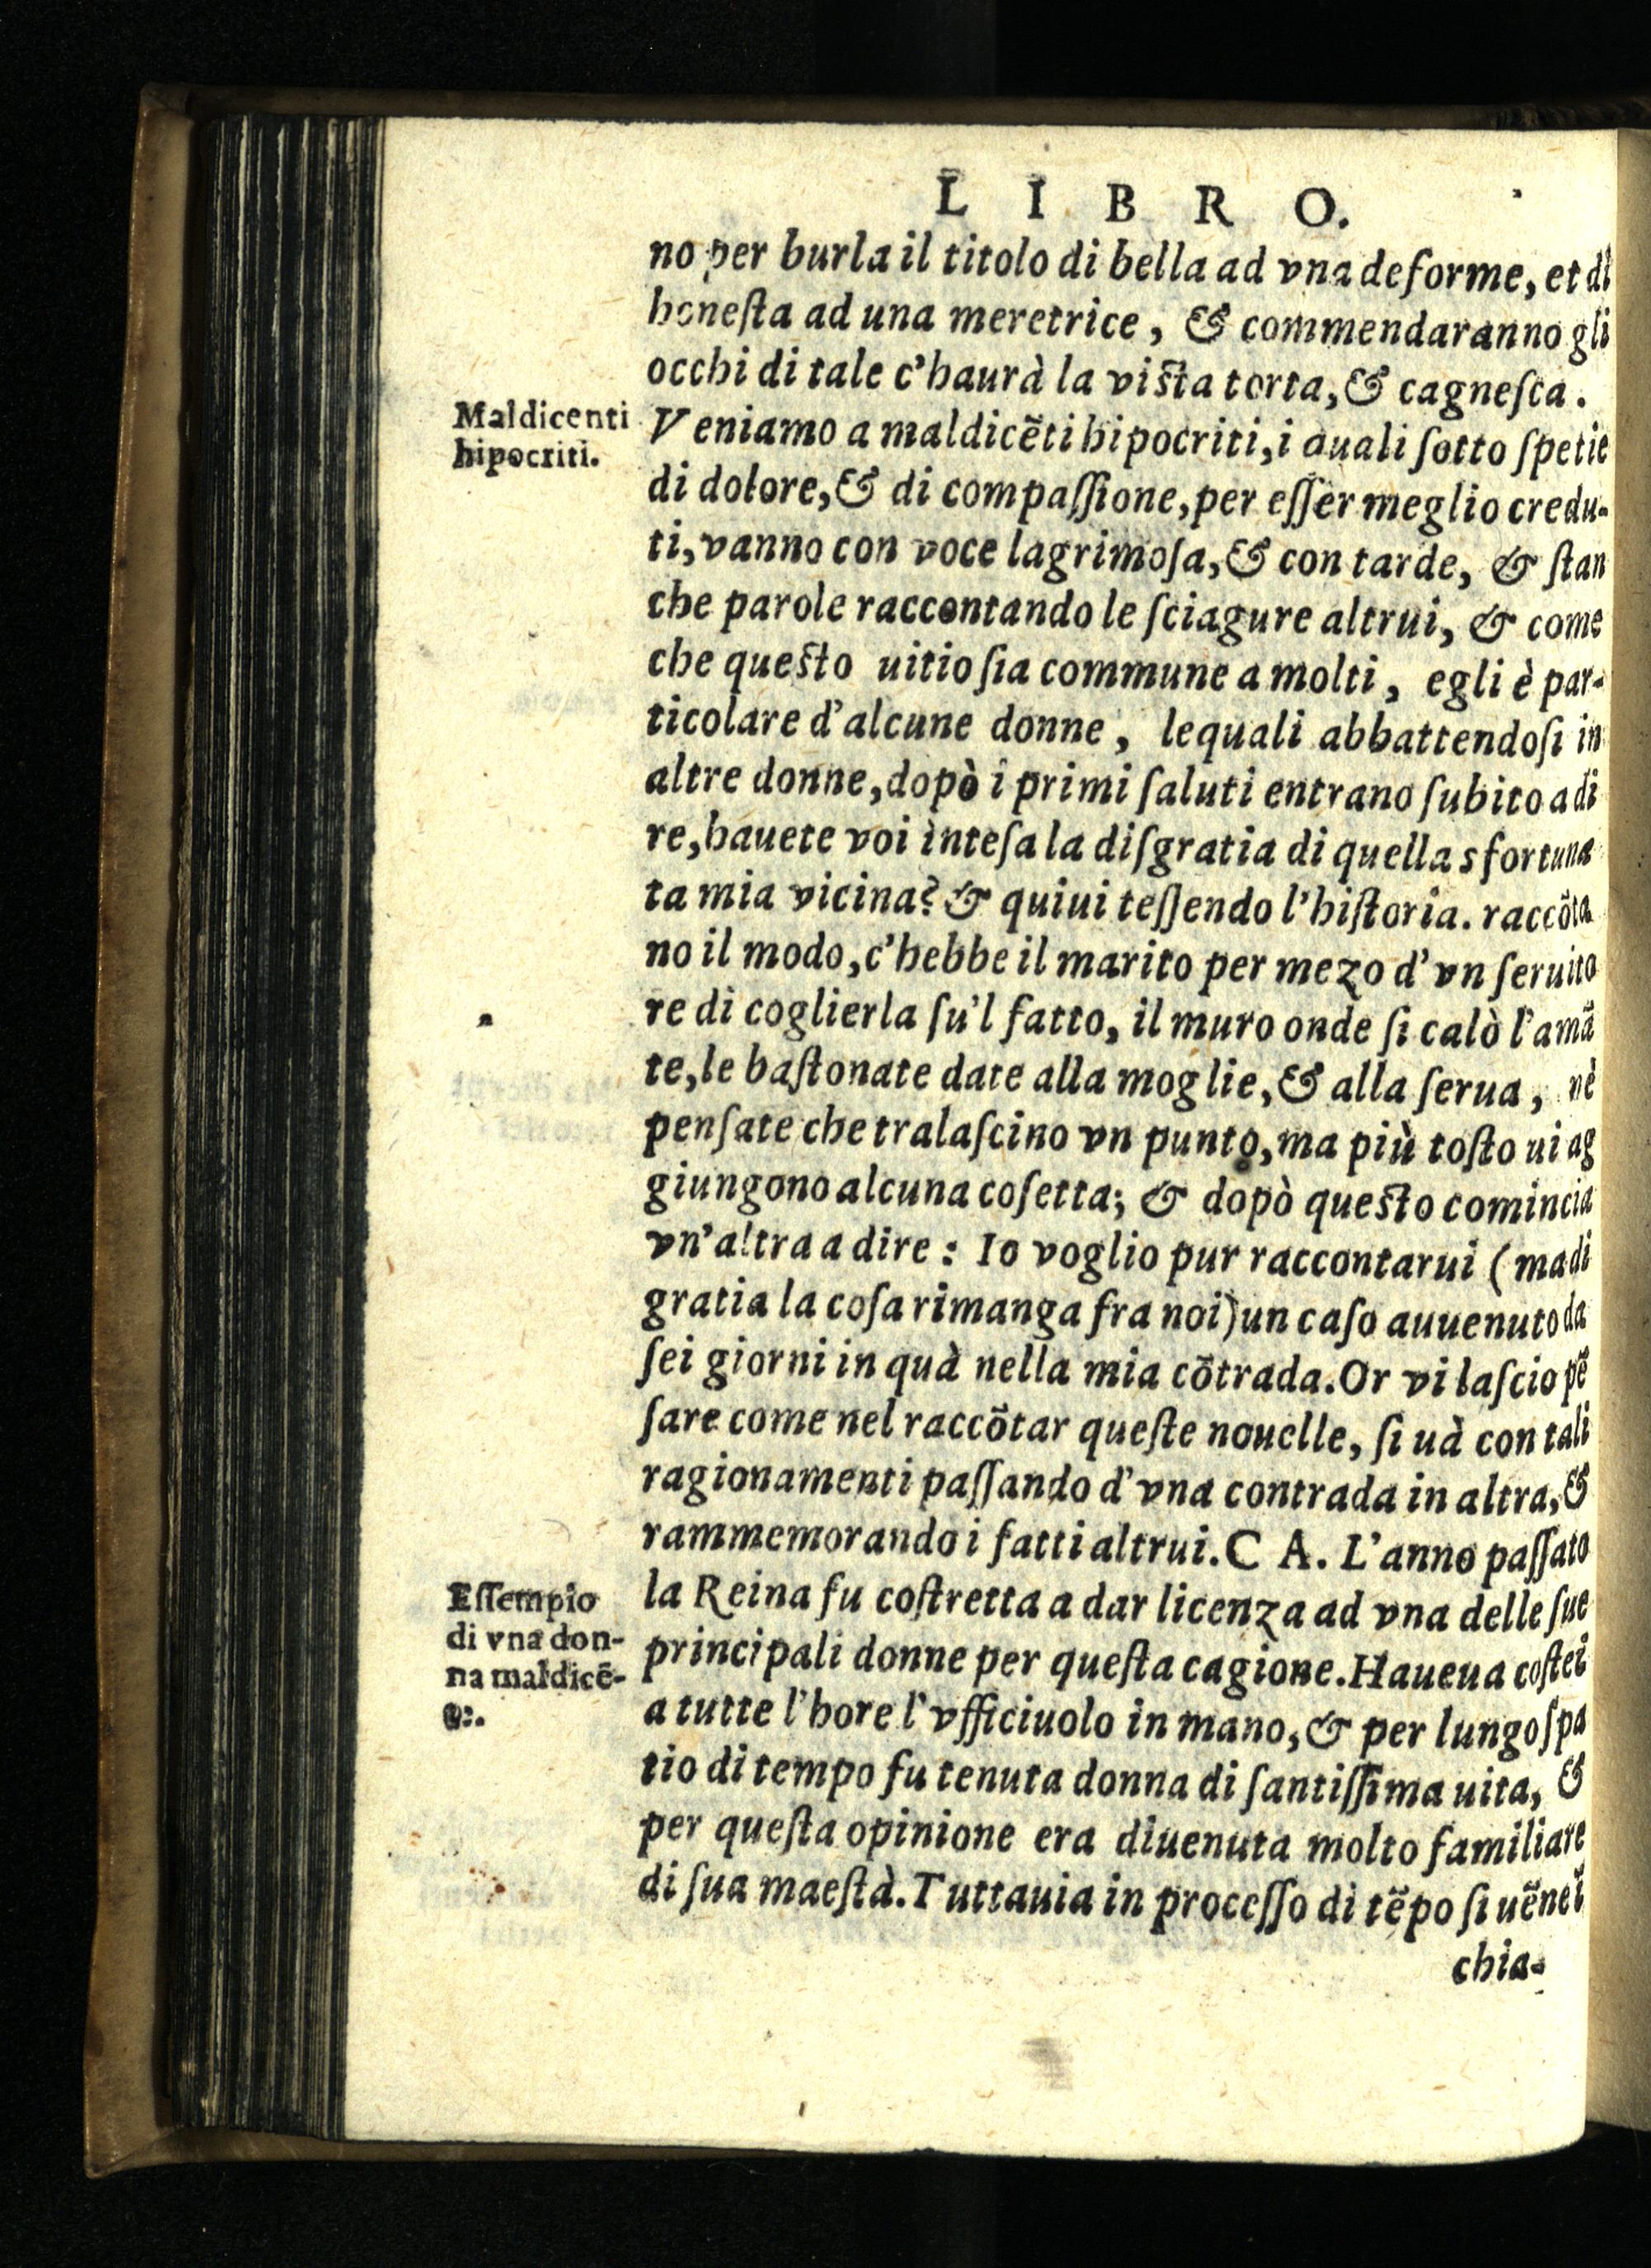 LIBRO.
no per burla il titolo di bella ad vna deforme, et di
honeſta ad una meretrice, & commendaranno gli
occhi di tale c'haurà la viſta torta, & cagneſca.
Maldicenti
hipocriti.
Veniamo a maldicẽti hipocriti, i quali ſotto ſpetie
di dolore, & di compaſſione, per eſſer meglio credu-
ti, vanno con voce lagrimoſa, & con tarde, & ſtan
che parole raccontando le ſciagure altrui, & come
che queſto uitio ſia commune a molti, egli è par-
ticolare d'alcune donne, lequali abbattendoſi in
altre donne, dopò i primi ſaluti entrano ſubito a di
re, hauete voi inteſa la diſgratia di quella sfortuna
ta mia vicina? & quiui teſſendo l'hiſtoria. raccõta
no il modo, c'hebbe il marito per mezo d'vn ſeruito
re di coglierla ſu'l fatto, il muro onde ſi calò l'amã
te, le baſtonate date alla moglie, & alla ſerua, nè
penſate che tralaſcino vn punto, ma più toſto ui ag
giungono alcuna coſetta; & dopò queſto comincia
vn'altra a dire: Io voglio pur raccontarui (ma di
gratia la coſa rimanga fra noi) un caſo auuenuto da
ſei giorni in quà nella mia cõtrada. Or vi laſcio pẽ
ſare come nel raccõtar queſte nouelle, ſi uà con tali
ragionamenti paſſando d'vna contrada in altra, &
rammemorando i fatti altrui. C A. L'anno paſſato
Eſſempio
di vna don-
na maldicẽ-
la Reina fu coſtretta a dar licenza ad vna delle ſue
principali donne per queſta cagione. Haueua coſtei
a tutte l'hore l'vfficiuolo in mano, & per lungo ſpa
tio di tempo fu tenuta donna di ſantiſſima uita, &
per queſta opinione era diuenuta molto familiare
di ſua maeſtà. Tuttauia in proceſſo di tẽpo ſi uẽne ĩ
chia-